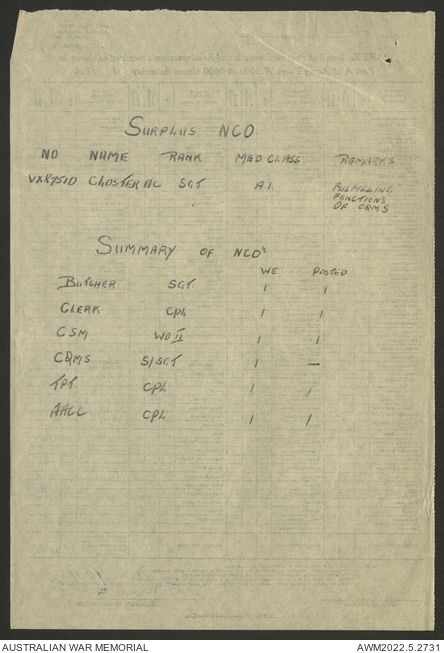 SURPLUS NCO
NO NAME RANK MED CLASS REMARKS
SGT A.1. FULFILLING
FUNCTIONS
OF CQMS
SUMMARY OF NCO's
WE POSTED
BUTCHER SGT 1 1
CLERK CPL 1 1
CSM WO II 1 1
CQMS S/SGT 1 —
TPT CPL 1 1
CPL 1 1
AUSTRALIAN WAR MEMORIAL AWM2022.5.2731